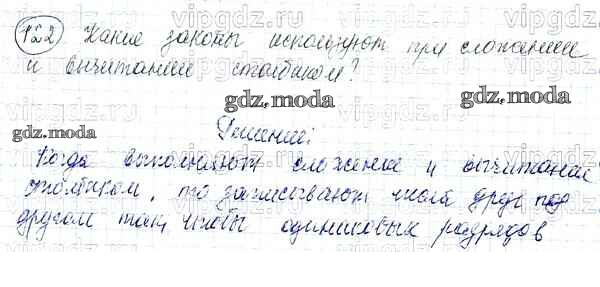 122 Какие законы используют при сложении
и вычитании столбиком?
gdz.moda gdz.moda
gdz.moda Решение:
Когда выполняют сложение и вычитание
столбиком, то записывают числа друг под
другом так, чтобы одинаковых разрядов